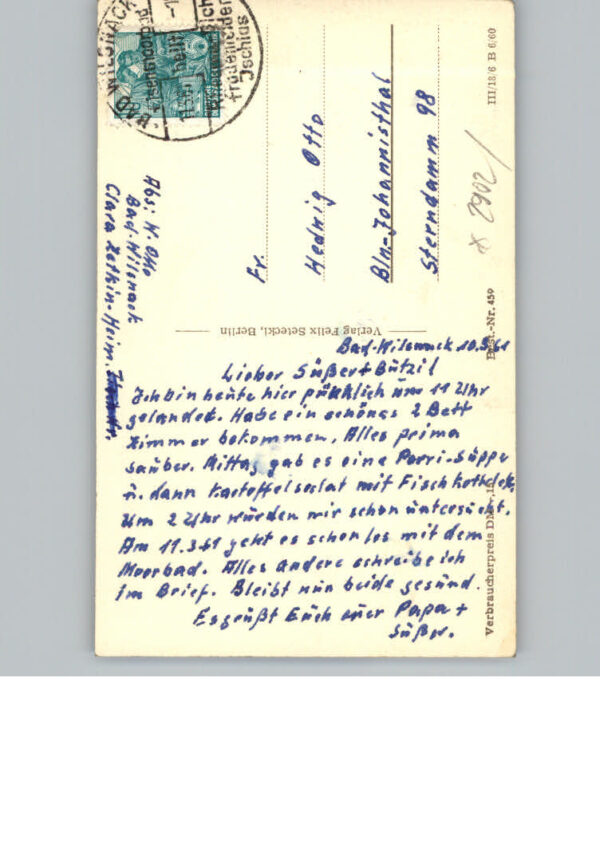 BAD WILSNACK
Eisenmoorbad
heilt
Frauenleiden
Ischias
Abs: W. Otto
Bad-Wilsnack
Clara Zetkin-Heim.
Fr.
Hedwig Otto
Bln-Johannisthal
Sterndamm 98
2902/
III/18/6 B 6/60
Best.-Nr. 459
Verbraucherpreis DM
Verlag Felix Setecki, Berlin
Bad-Wilsnack 10.3.61
Lieber Süßer + Bützil
Ich bin heute hier pünktlich um 11 Uhr
gelandet. Habe ein schönes 2 Bett
Zimmer bekommen, Alles prima
sauber. Mittag gab es eine Porri-Suppe
u. dann Kartoffelsalat mit Fischkottelet.
Um 2 Uhr wurden wir schon untersucht.
Am 11.3.61 geht es schon los mit dem
Moorbad. Alles andere schreibe ich
im Brief. Bleibt nun beide gesund.
Es grüßt Euch euer Papa +
Süßer.